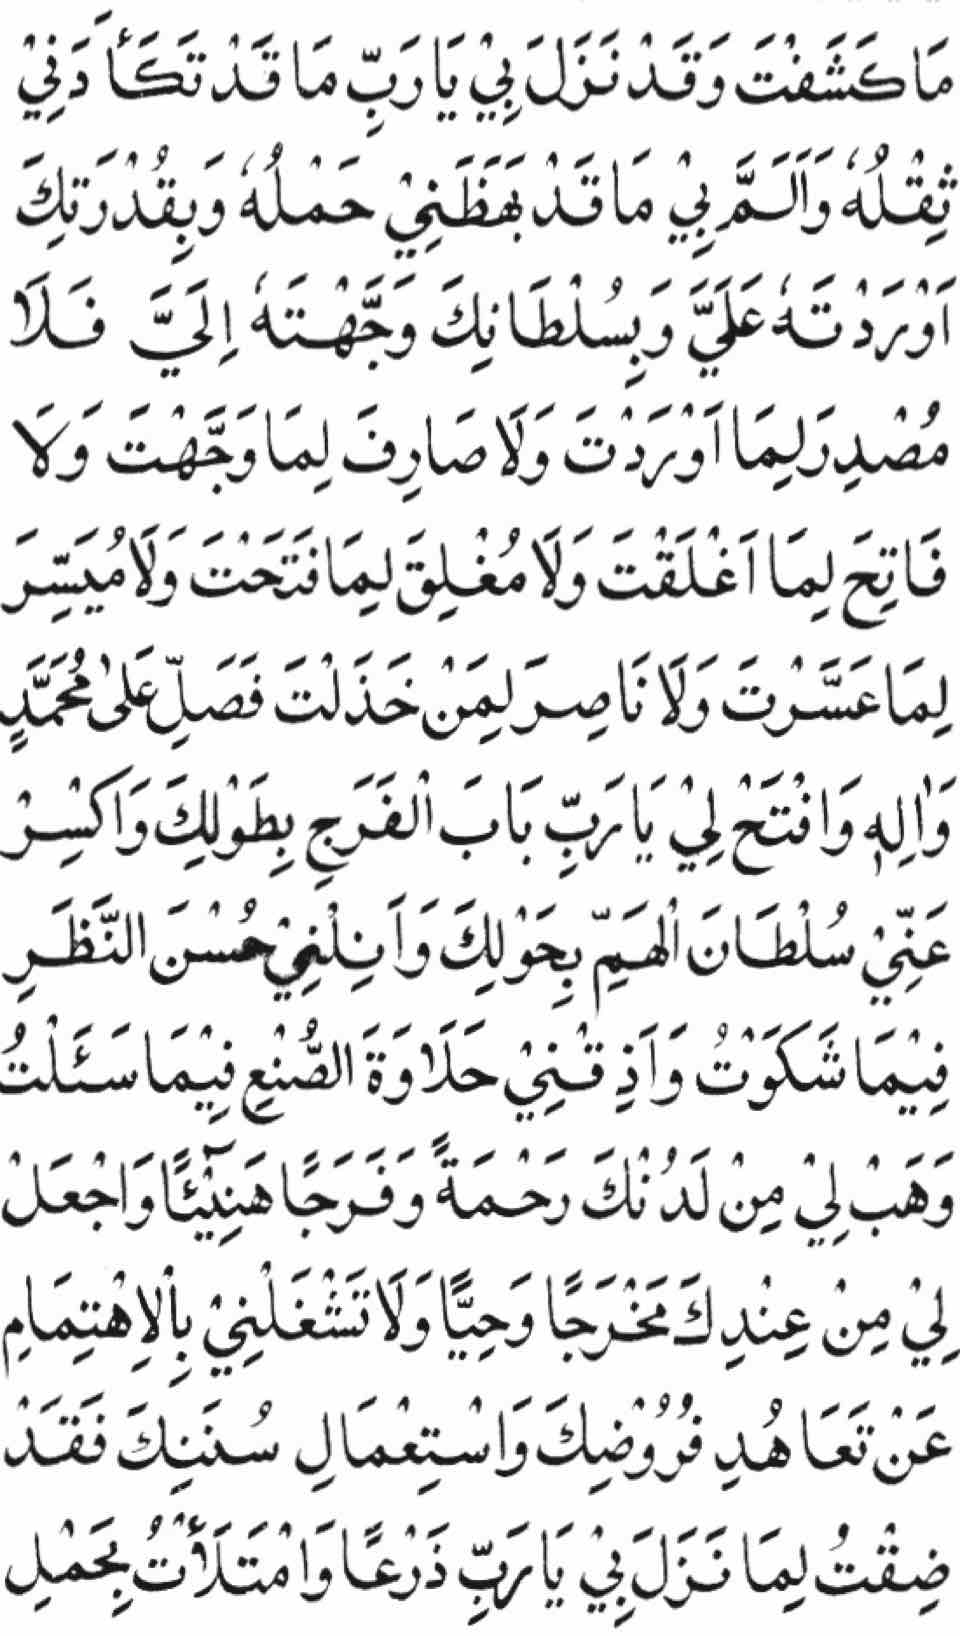 مَا كَشَفْتَ وَقَدْ نَزَلَ بِيْ يَا رَبِّ مَا قَدْ تَكَأَّدَنِيْ
ثِقْلُهٗ وَاَلَمَّ بِيْ مَا قَدْ بَهَظَنِيْ حَمْلُهٗ وَبِقُدْرَتِكَ
اَوْرَدْتَهٗ عَلَيَّ وَبِسُلْطَانِكَ وَجَّهْتَهٗ اِلَيَّ فَلَا
مُصْدِرَ لِمَا اَوْرَدْتَ وَلَا صَارِفَ لِمَا وَجَّهْتَ وَلَا
فَاتِحَ لِمَا اَغْلَقْتَ وَلَا مُغْلِقَ لِمَا فَتَحْتَ وَلَا مُيَسِّرَ
لِمَا عَسَّرْتَ وَلَا نَاصِرَ لِمَنْ خَذَلْتَ فَصَلِّ عَلٰى مُحَمَّدٍ
وَاٰلِهٖ وَافْتَحْ لِيْ يَا رَبِّ بَابَ الْفَرَجِ بِطَوْلِكَ وَاكْسِرْ
عَنِّيْ سُلْطَانَ الْهَمِّ بِحَوْلِكَ وَاَنِلْنِيْ حُسْنَ النَّظَرِ
فِيْمَا شَكَوْتُ وَاَذِقْنِيْ حَلَاوَةَ الصُّنْعِ فِيْمَا سَئَلْتُ
وَهَبْ لِيْ مِنْ لَدُنْكَ رَحْمَةً وَفَرَجًا هَنِيْٓئًا وَاجْعَلْ
لِيْ مِنْ عِنْدِكَ مَخْرَجًا وَحِيًّا وَلَا تَشْغَلْنِيْ بِالْاِهْتِمَامِ
عَنْ تَعَاهُدِ فُرُوْضِكَ وَاسْتِعْمَالِ سُنَنِكَ فَقَدْ
ضِقْتُ لِمَا نَزَلَ بِيْ يَا رَبِّ ذَرْعًا وَامْتَلَأْتُ بِحَمْلِ